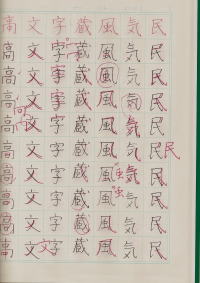 高 文 字 蔵 風 気 民
高 文 字 蔵 風 気 民
高 文 字 蔵 風 気 民
高 文 字 蔵 風 気 民
高 文 字 蔵 風 気 民
高 文 字 蔵 風 気 民 民
高 文 字 蔵 風 虫 気 民
高 文 字 蔵 風 虫 気 民
高 文 字 蔵 風 気 民
高 文 文 字 蔵 風 気 民